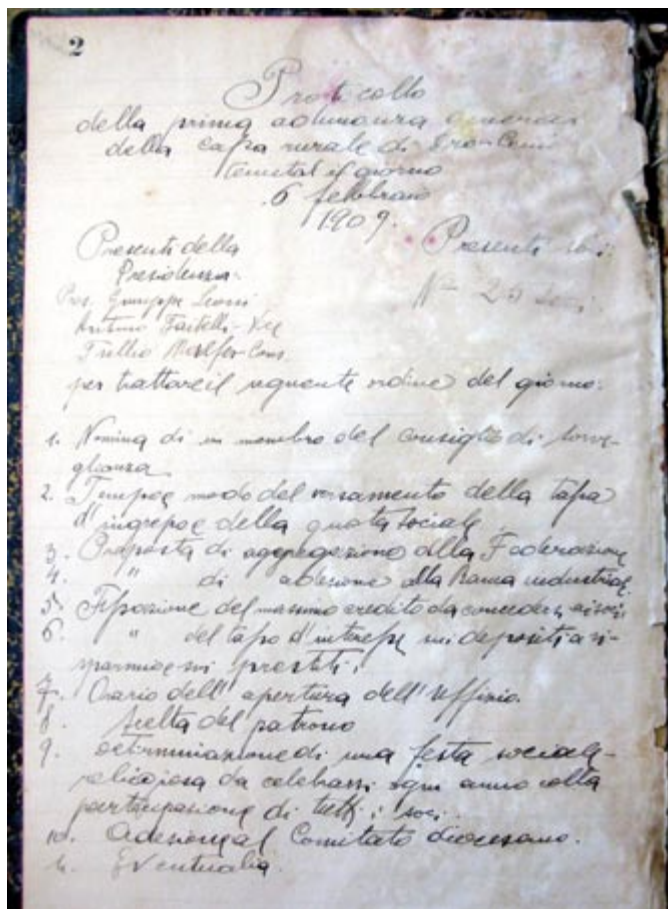 2
Protocollo
della prima adunanza generale
della cassa rurale di
tenutasi il giorno
6 febbraio
1909.
Presenti della
Presidenza.
Presenti soci.
Nº 25 Soci.
Pres. Giuseppe Leoni
Arturo
Tullio
per trattare il seguente ordine del giorno:
1. Nomina di un membro del consiglio di sorve-
glianza
2. Tempo e modo del versamento della tassa
d'ingresso e della quota sociale
3. Proposta di aggregazione alla Federazione
4. " di adesione alla Banca industriale
5. Fissazione del massimo credito da concedersi ai soci
6. " del tasso d'interesse sui depositi a ri-
sparmio e sui prestiti.
7. Orario dell' apertura dell' Uffizio.
8. Scelta del patrono
9. Determinazione di una festa sociale-
religiosa da celebrarsi ogni anno colla
partecipazione di tutti i soci.
10. Adesione al Comitato diocesano.
11. Eventualia.